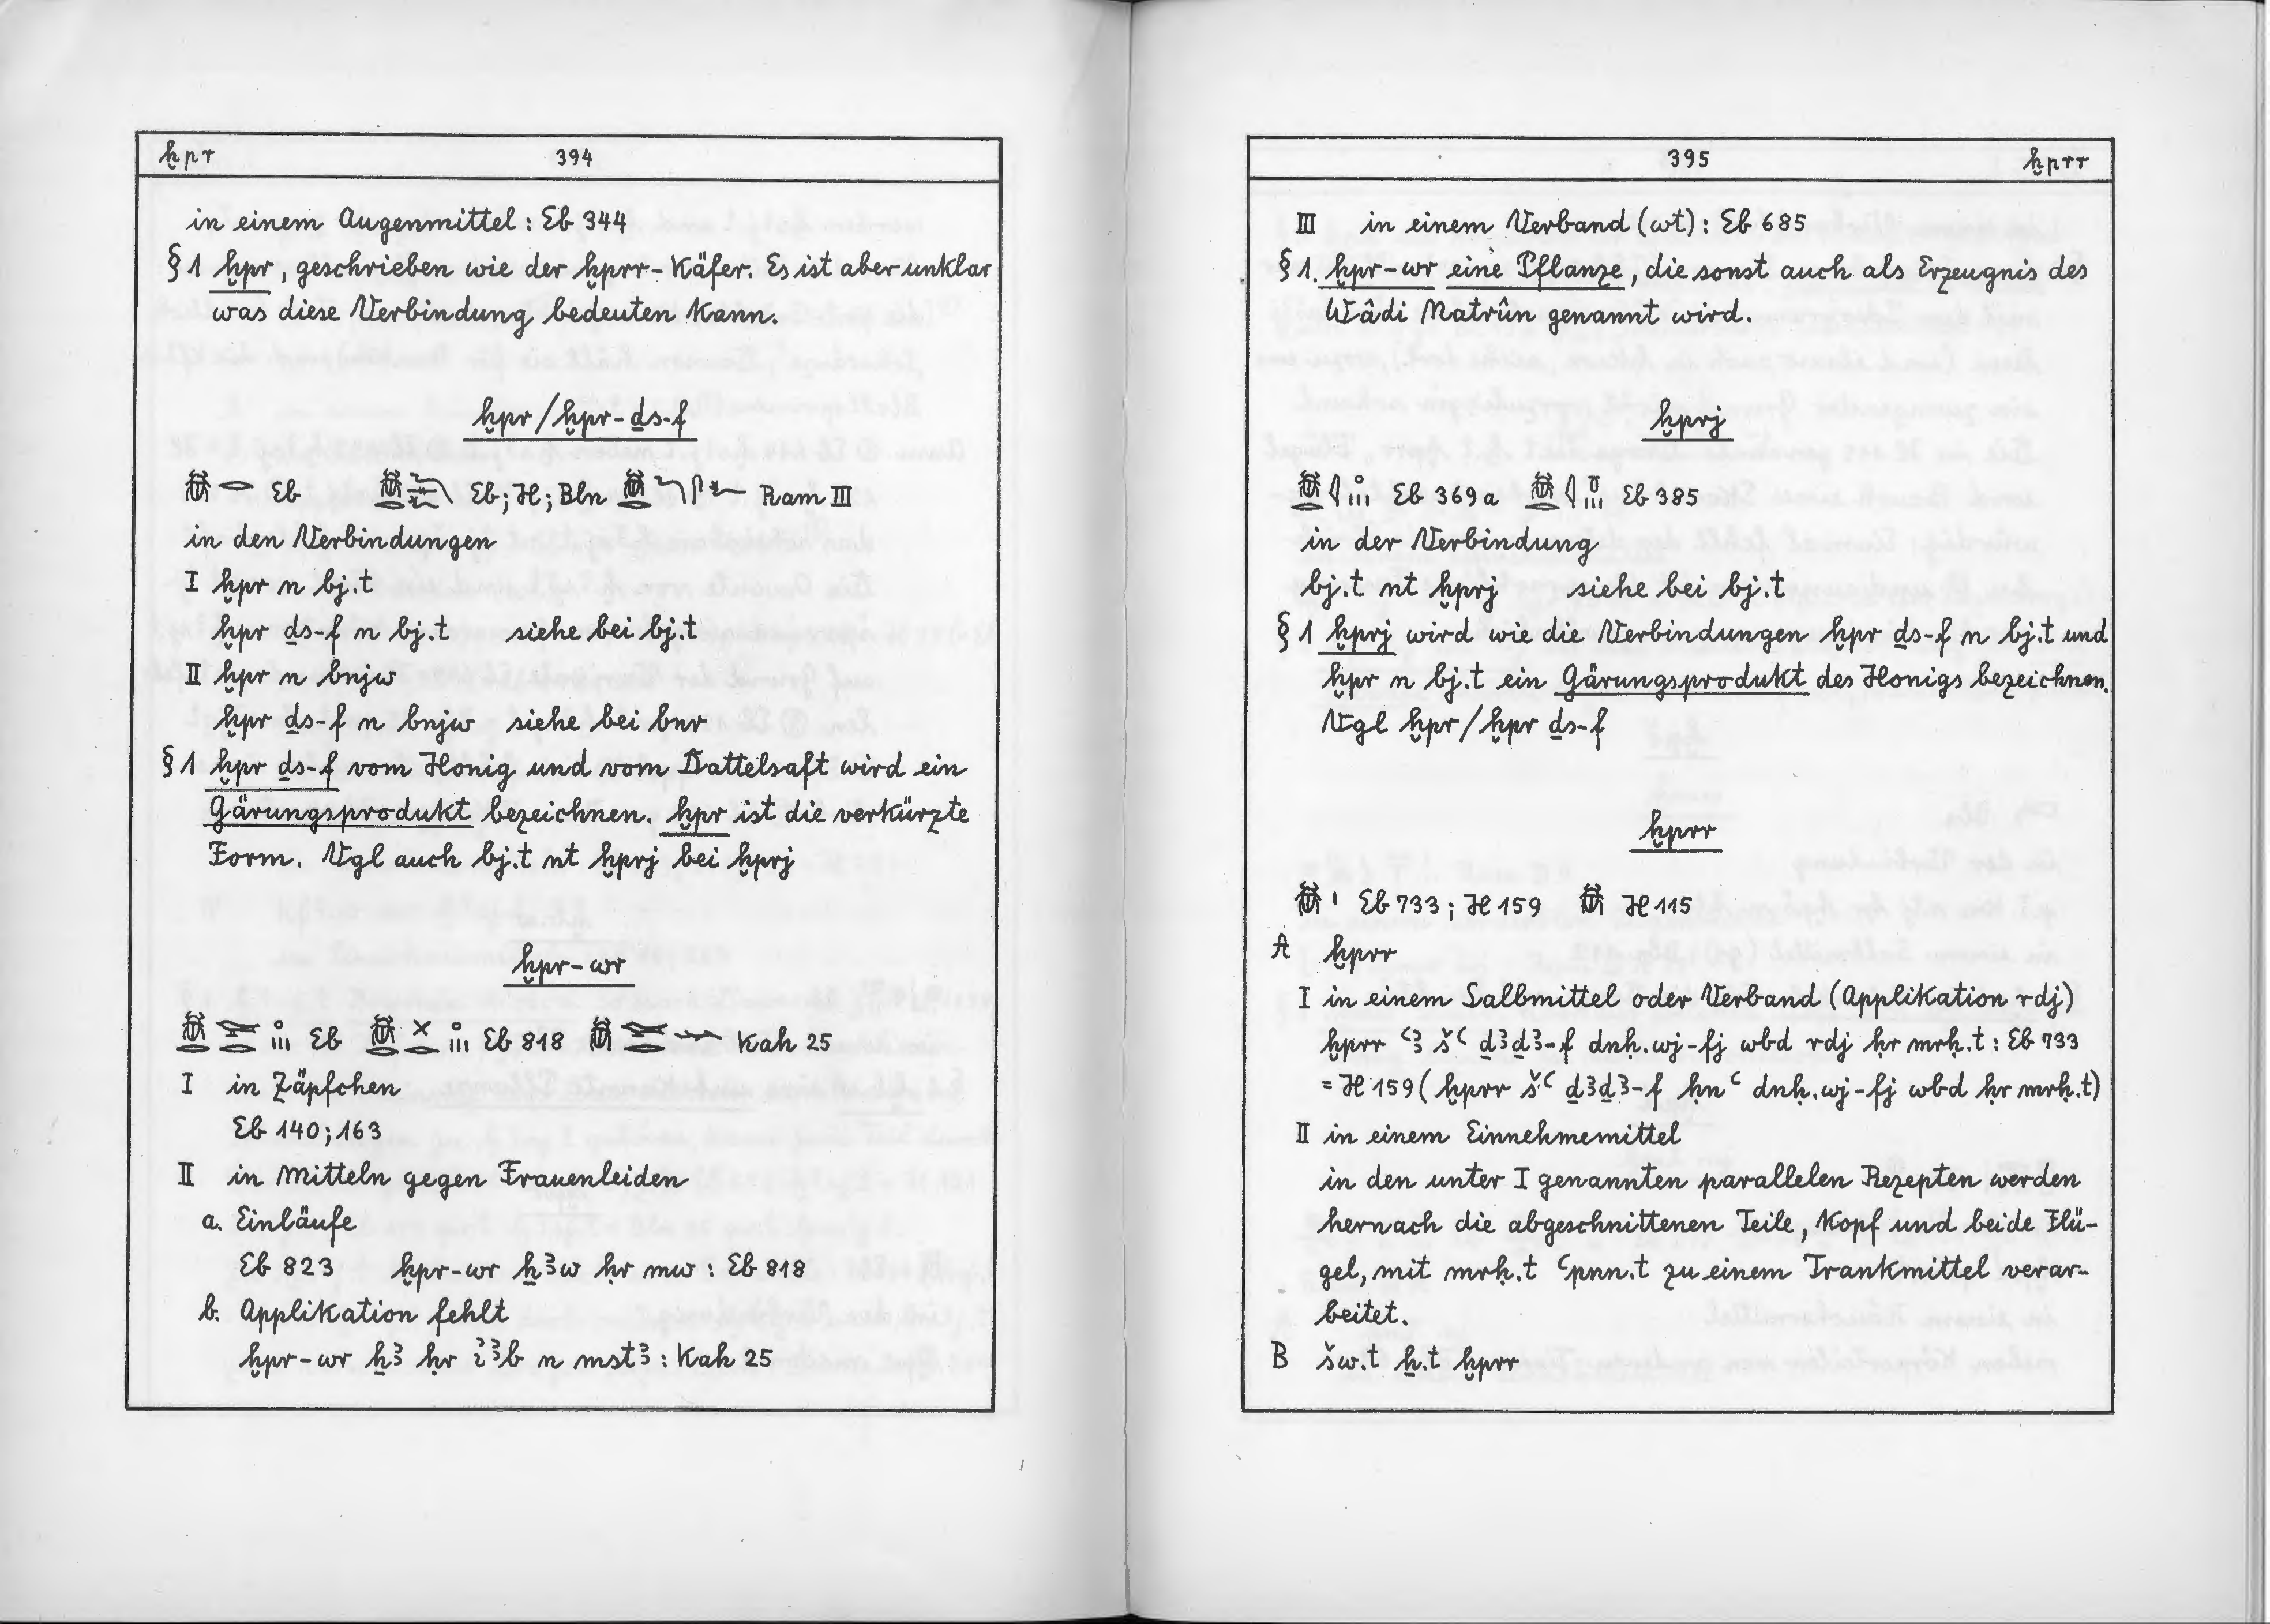 ḫpr 394
in einem Augenmittel: Eb 344
§ 1 ḫpr, geschrieben wie der ḫprr-Käfer. Es ist aber unklar
was diese Verbindung bedeuten kann.
ḫpr/ḫpr-ḏs-f
Eb Eb; H; Bln Ram III
in den Verbindungen
I ḫpr n bj.t
ḫpr ḏs-f n bj.t siehe bei bj.t
II ḫpr n bnjw
ḫpr ḏs-f n bnjw siehe bei bnr
§ 1 ḫpr ḏs-f vom Honig und vom Dattelsaft wird ein
Gärungsprodukt bezeichnen. ḫpr ist die verkürzte
Form. Vgl auch bj.t nt ḫprj bei ḫprj
ḫpr-wr
Eb Eb 818 Kah 25
I in Zäpfchen
Eb 140; 163
II in Mitteln gegen Frauenleiden
a. Einläufe
Eb 823 ḫpr-wr ẖꜣw ḥr mw : Eb 818
b. Applikation fehlt
ḫpr-wr ẖꜣ ḥr iꜣꜣb n mstꜣ : Kah 25
395 ḫprr
III in einem Verband (wt): Eb 685
§ 1. ḫpr-wr eine Pflanze, die sonst auch als Erzeugnis des
Wâdi Natrûn genannt wird.
ḫprj
Eb 369a Eb 385
in der Verbindung
bj.t nt ḫprj siehe bei bj.t
§ 1 ḫprj wird wie die Verbindungen ḫpr ḏs-f n bj.t und
ḫpr n bj.t ein Gärungsprodukt des Honigs bezeichnen.
Vgl ḫpr/ḫpr ḏs-f
ḫprr
Eb 733; H 159 H 115
A ḫprr
I in einem Salbmittel oder Verband (Applikation rdj)
ḫprr ꜥꜣ šꜥ ḏꜣḏꜣ-f dnḥ.wj-fj wbd rdj ḥr mrḥ.t : Eb 733
= H 159 (ḫprr šꜥ ḏꜣḏꜣ-f ḥnꜥ dnḥ.wj-fj wbd ḥr mrḥ.t)
II in einem Einnehmemittel
in den unter I genannten parallelen Rezepten werden
hernach die abgeschnittenen Teile, Kopf und beide Flü-
gel, mit mrḥ.t ꜥpnn.t zu einem Trankmittel verar-
beitet.
B šw.t ẖ.t ḫprr